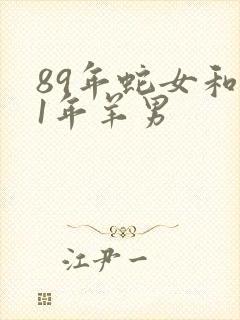 89年蛇女和
1年羊男
江尹一